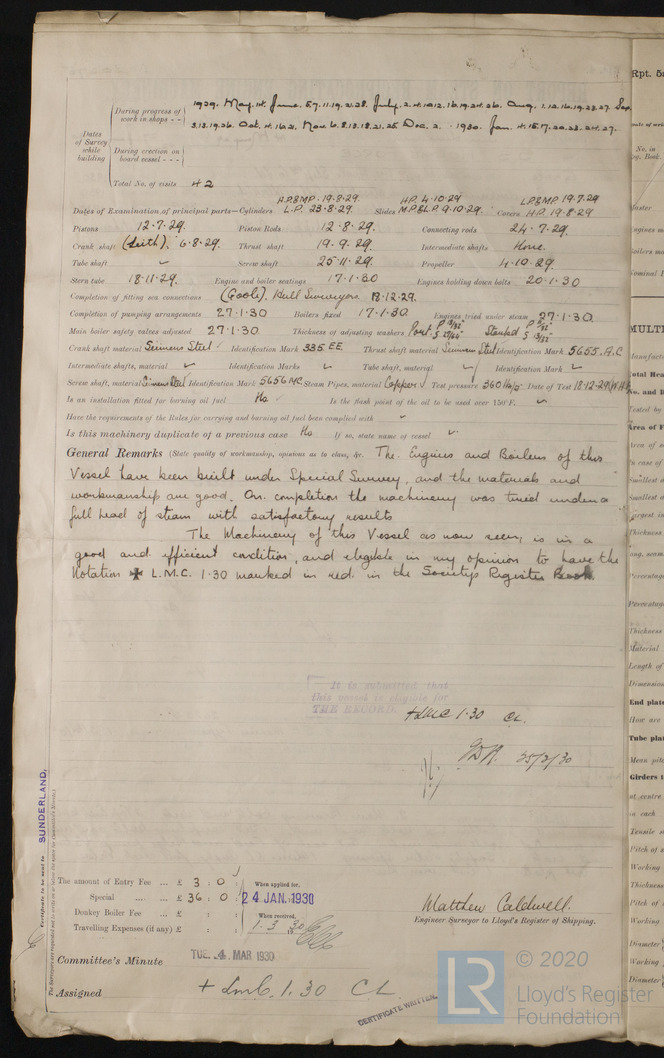 During progress of work in shops - - 1929. May. 14. June. 5.7.11.19.21.28. July. 2.4.10.12.16.19.24.26. Aug. 1.12.16.19.23.27. Sep.
3.13.19.26. Oct. 4. 16.21. Nov. 6.8.13.18.21.25 Dec. 2. 1930. Jan. 4.15.17.20.23.24.27.
Dates of Survey while building
During erection on board vessel - - -
Total No. of visits 42
H.P.&M.P. 19.8.29. H.P. 4.10.29 L.P.&M.P. 19.7.29
Dates of Examination of principal parts—Cylinders L.P. 23.8.29. Slides M.P.&L.P. 9.10.29. Covers H.P. 19.8.29
Pistons 12.7.29. Piston Rods 12.8.29. Connecting rods 24.7.29.
Crank shaft (Leith). 6.8.29. Thrust shaft 19.9.29. Intermediate shafts None.
Tube shaft Screw shaft 25.11.29. Propeller 4.10.29.
Stern tube 18.11.29. Engine and boiler seatings 17.1.30 Engines holding down bolts 20.1.30
Completion of fitting sea connections (Goole). Hull Surveyors. 18.12.29.
Completion of pumping arrangements 27.1.30 Boilers fixed 17.1.30. Engines tried under steam 27.1.30.
Main boiler safety valves adjusted 27.1.30. Thickness of adjusting washers Port P S Starbd P S
Crank shaft material Siemens Steel Identification Mark 335 EE. Thrust shaft material Siemens Steel Identification Mark 5655. A.C
Intermediate shafts, material Identification Marks Tube shaft, material Identification Mark
Screw shaft, material Siemens Steel Identification Mark 5656 MC Steam Pipes, material Copper Test pressure 360 lbs/□" Date of Test 18.12.29
Is an installation fitted for burning oil fuel No Is the flash point of the oil to be used over 150°F.
Have the requirements of the Rules for carrying and burning oil fuel been complied with
Is this machinery duplicate of a previous case No If so, state name of vessel
General Remarks (State quality of workmanship, opinions as to class, &c. The Engines and Boilers of this
Vessel have been built under Special Survey, and the materials and
workmanship are good. On completion the machinery was tried under a
full head of steam with satisfactory results
The Machinery of this Vessel as now seen, is in a
good and efficient condition, and eligible in my opinion to have the
Notation ✠ L.M.C. 1.30 marked in red in the Society's Register Book
It is submitted that
this vessel is eligible for
THE RECORD.
+LMC 1.30 CL.
25/2/30
Certificate to be sent to SUNDERLAND.
The amount of Entry Fee ... £ 3 : 0 :
Special ... £ 36 : 0 :
Donkey Boiler Fee ... £ : :
Travelling Expenses (if any) £ : :
When applied for,
24 JAN. 1930
When received,
1.3.30
Matthew Caldwell.
Engineer Surveyor to Lloyd's Register of Shipping.
Committee's Minute TUE. 4 MAR 1930
Assigned + LMC. 1.30 CL
CERTIFICATE WRITTEN.
Rpt. 5
MULTI
LR
© 2020
Lloyd's Register
Foundation